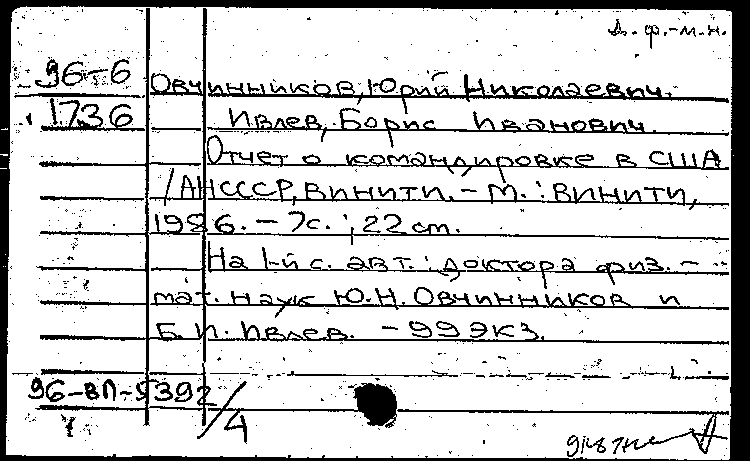 д. ф.-м.н.
96-6 Овчинников, Юрий Николаевич.
1736 Ивлев, Борис Иванович.
Отчет о командировке в США
/АНСССР, ВИНИТИ. - М. : ВИНИТИ,
1986. - 7с. ; 22 см.
На 1-й с. авт. : доктора физ. -
мат. наук Ю.Н. Овчинников и
Б.И. Ивлев. - 99 экз.
96-ВП-5392/4